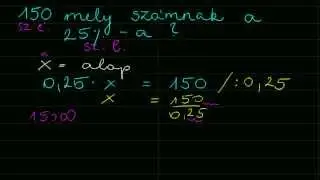 150 mely számnak a
sz. é.
25%-a ?
sz. l.
x = alap
0,25 · x = 150 /:0,25
x = 150/0,25
15000